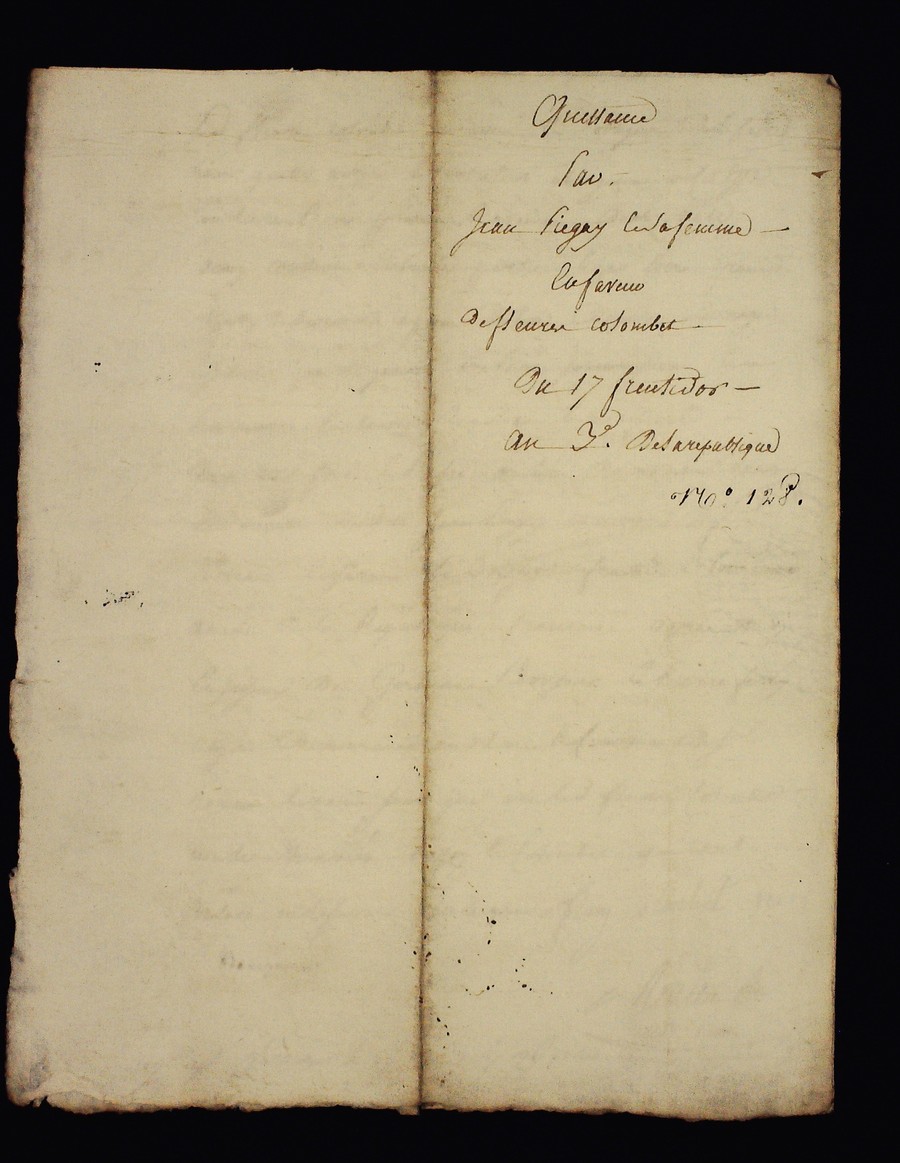 Quittance
Par
Jean Piegay et sa femme —
En faveur
De fleurie colombet —
Du 17 fructidor —
an 3e. De la republique
No 128.